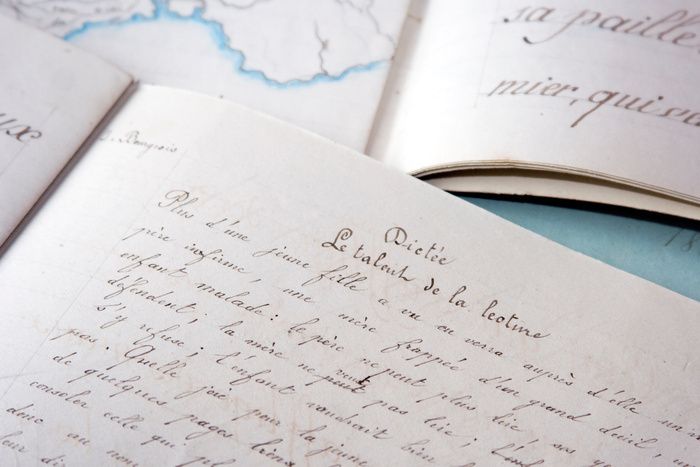 aux
sa paille
mier, qui sa
Bourgeois
Dictée
Le talent de la lecture
Plus d'une jeune fille a vu ou verra auprès d'elle un
père infirme, une mère frappée d'un grand deuil, un
enfant malade: le père ne peut plus lire ses
défendent; la mère ne peut pas lire;
s'y refuse; l'enfant voudrait bien
pas. Quelle joie pour la jeune
de quelques pages
consoler celle qui
donc au nom
leur